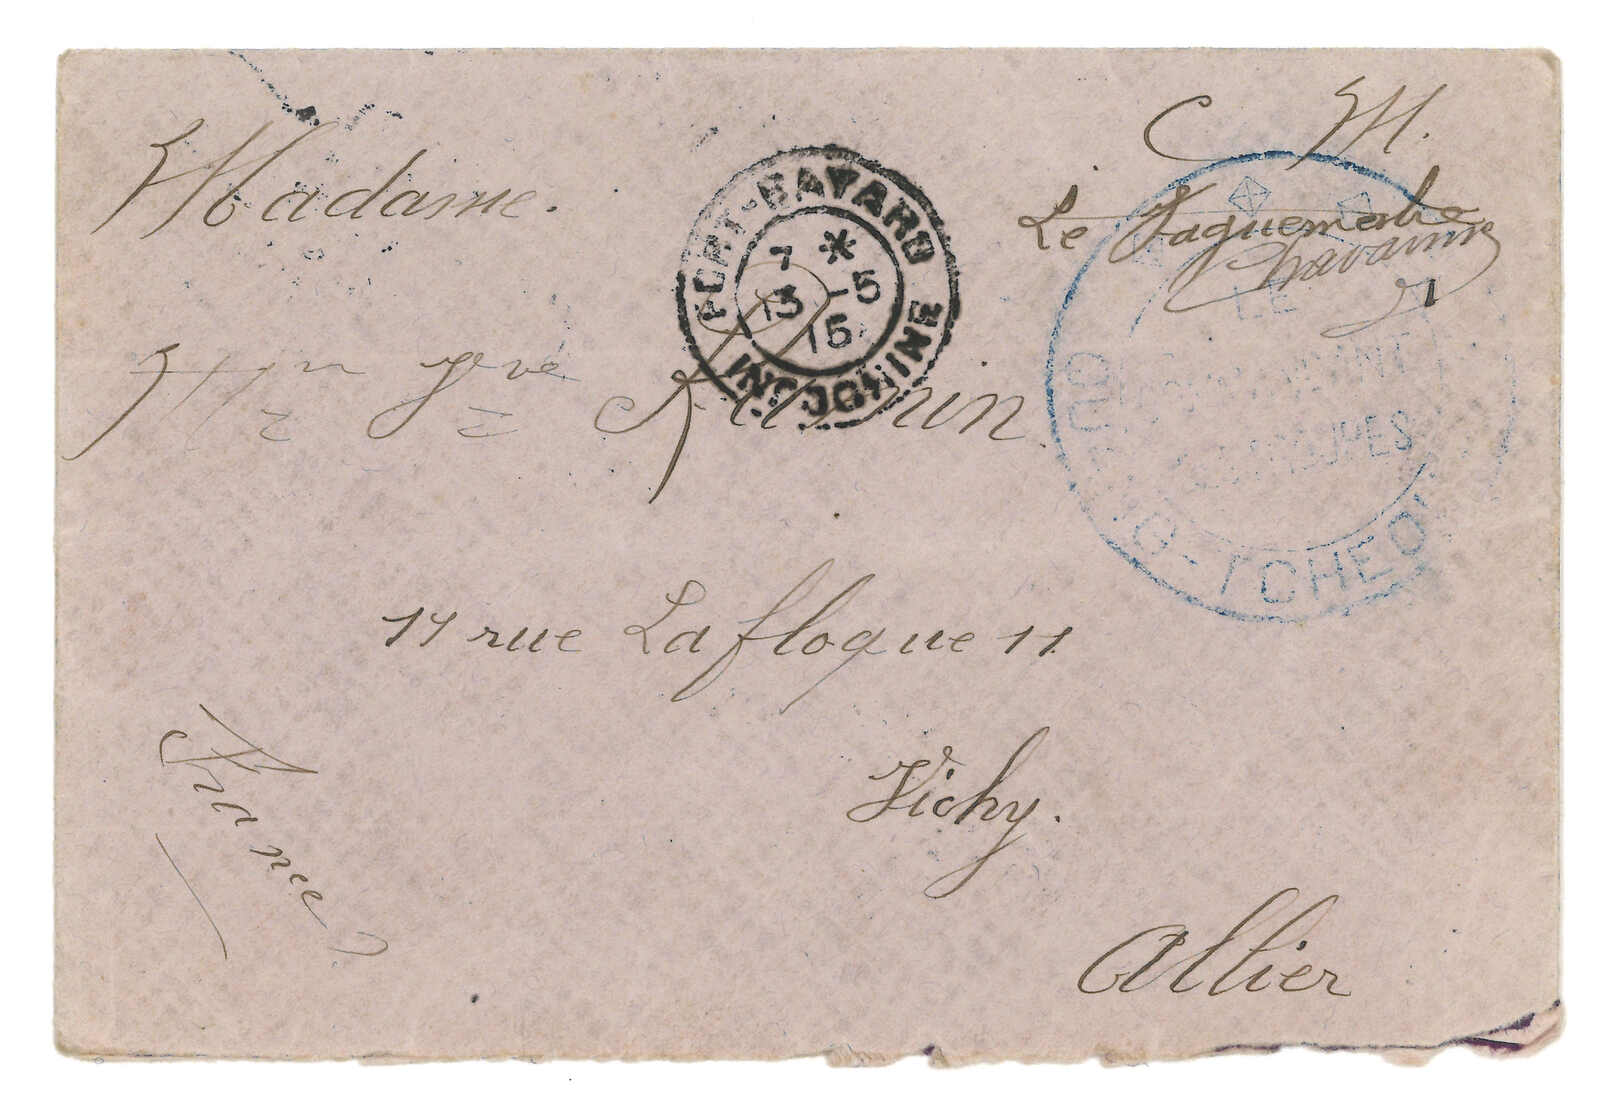 C M.
Madame.
PORT-BAYARD
7 *
13 -5
15
INDOCHINE
Le
Chavanne
LE
COMMANDANT
DES TROUPES
QUANG-TCHEOU
Mme Vve
rue Lafloque 11
Vichy.
Allier
France